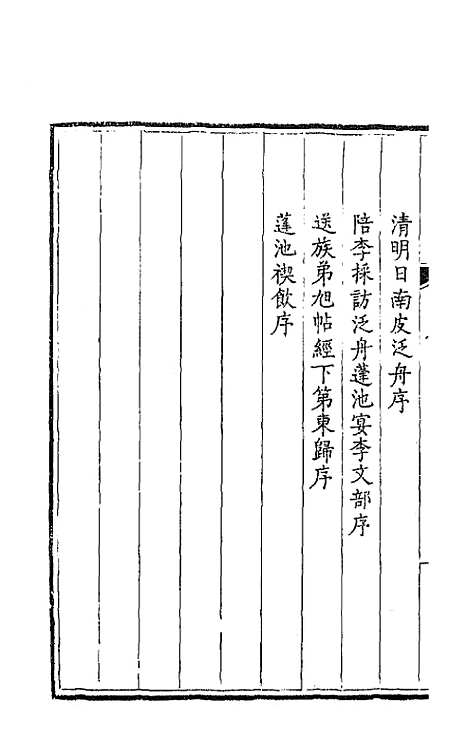 清明日南皮泛舟序
陪李採訪泛舟蓬池宴李文部序
送族弟旭帖經下第東歸序
蓬池禊飲序